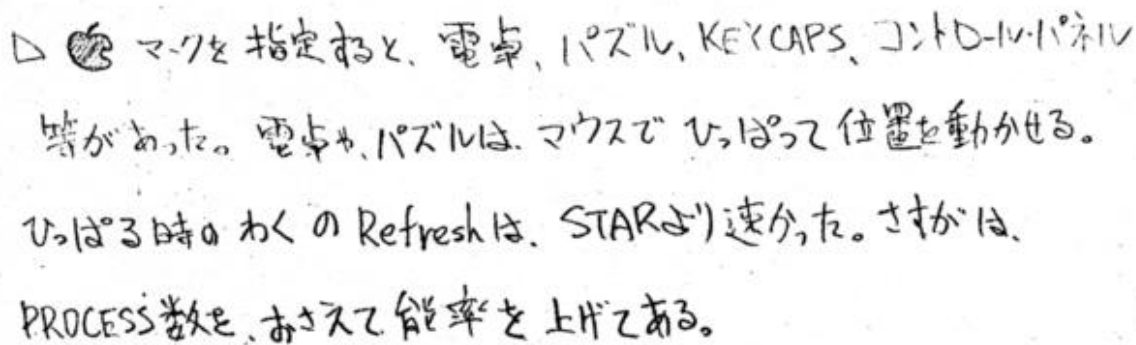 ▷ マークを指定すると、電卓、パズル、KEYCAPS、コントロール・パネル
等があった。電卓や、パズルは、マウスでひっぱって位置を動かせる。
ひっぱる時のわくのRefreshは、STARより速かった。さすがは、
PROCESS数を、おさえて能率を上げてある。